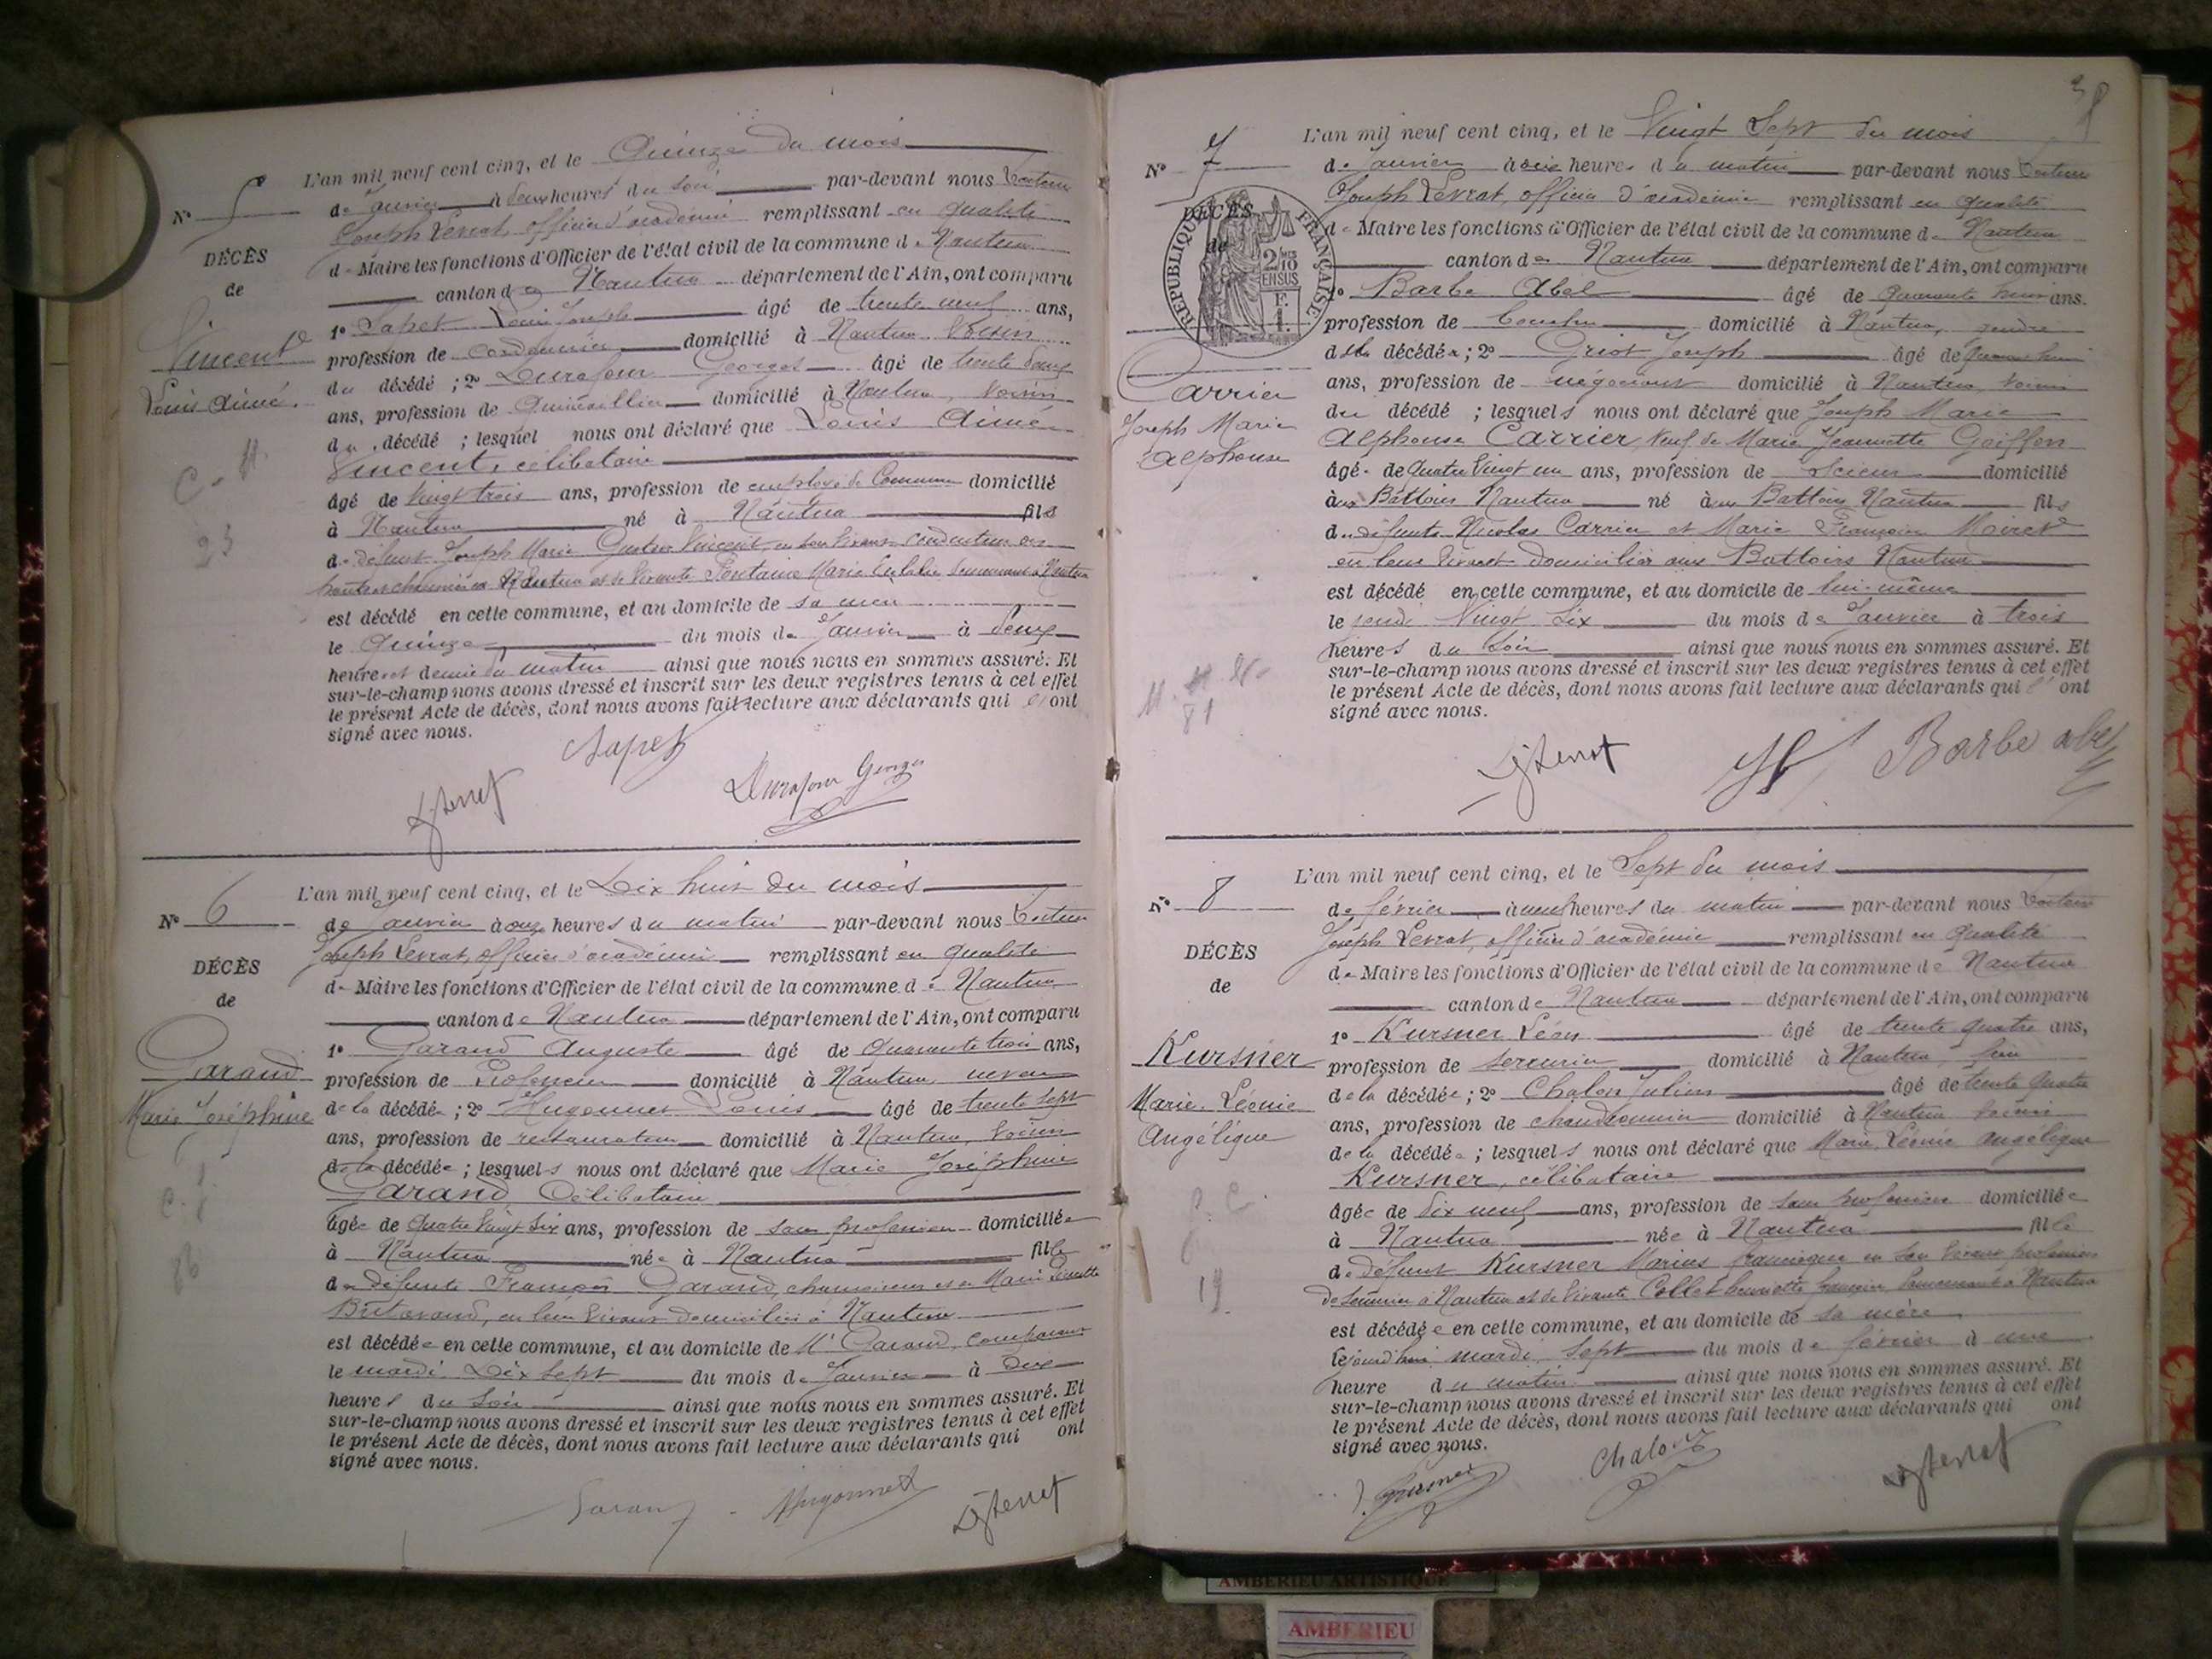 L'an mil neuf cent cinq, et le Quinze du mois
N° 5
de Janvier à deux heures du soir par-devant nous
Joseph Levrat, officier d'académie remplissant en qualité
DÉCÈS
de
de Maire les fonctions d'Officier de l'état civil de la commune de Nantua
canton de Nantua département de l'Ain, ont comparu
1° Sapet Louis Joseph âgé de trente neuf ans,
Vincent
Louis Aimé.
profession de cordonnier domicilié à Nantua voisin
du décédé ; 2° Durafour Georges âgé de trente
ans, profession de Quincaillier domicilié à Nantua, voisin
du décédé ; lesquel nous ont déclaré que Louis Aimé
Vincent, célibataire
C. H.
23
âgé de vingt trois ans, profession de employé de Commerce domicilié
à Nantua né à Nantua fils
de défunt Joseph Marie Gustave Vincent, en son vivant conducteur des
ponts et chaussées à Nantua et de vivante Fontaine Marie demeurant à Nantua
est décédé en cette commune, et au domicile de sa mère
le Quinze du mois de Janvier à deux
heures et demie du matin ainsi que nous nous en sommes assuré. Et
sur-le-champ nous avons dressé et inscrit sur les deux registres tenus à cet effet
le présent Acte de décès, dont nous avons fait lecture aux déclarants qui ont
signé avec nous.
Sapet
Durafour Georges
L'an mil neuf cent cinq, et le Dix huit du mois
N° 6
de Janvier à onze heures du matin par-devant nous
Joseph Levrat, officier d'académie remplissant en qualité
DÉCÈS
de
de Maire les fonctions d'Officier de l'état civil de la commune de Nantua
canton de Nantua département de l'Ain, ont comparu
1° Garand Auguste âgé de quarante trois ans,
Garand
Marie Joséphine
profession de Professeur domicilié à Nantua neveu
de la décédée ; 2° Hugonnet Louis âgé de trente sept
ans, profession de restaurateur domicilié à Nantua, voisin
de la décédée ; lesquels nous ont déclaré que Marie Joséphine
Garand Célibataire
C.
86
âgée de quatre vingt six ans, profession de sans profession domiciliée
à Nantua née à Nantua fille
de défunts François Garand, et de Marie
en leur vivant domiciliés à Nantua
est décédée en cette commune, et au domicile de Mr Garand, comparant
le mardi Dix sept du mois de Janvier à
heures du soir ainsi que nous nous en sommes assuré. Et
sur-le-champ nous avons dressé et inscrit sur les deux registres tenus à cet effet
le présent Acte de décès, dont nous avons fait lecture aux déclarants qui ont
signé avec nous.
Garand Hugonnet
L'an mil neuf cent cinq, et le Vingt Sept du mois
N° 7
de Janvier à heures du matin par-devant nous
Joseph Levrat, officier d'académie remplissant en qualité
DÉCÈS
de
RÉPUBLIQUE FRANÇAISE
2/10
EN SUS
F.
1.
de Maire les fonctions d'Officier de l'état civil de la commune de Nantua
canton de Nantua département de l'Ain, ont comparu
1° Barbe Abel âgé de quarante huit ans.
profession de domicilié à Nantua, gendre
du décédé ; 2° Griot Joseph âgé de
Carrier
Joseph Marie
Alphonse
ans, profession de négociant domicilié à Nantua, voisin
du décédé ; lesquels nous ont déclaré que Joseph Marie
Alphonse Carrier, veuf de Marie Jeannette Goiffon
âgé de quatre vingt un ans, profession de scieur domicilié
aux Battoirs Nantua né aux Battoirs Nantua fils
de défunts Nicolas Carrier et Marie Françoise Moiret
en leur vivant domiciliés aux Battoirs Nantua
est décédé en cette commune, et au domicile de lui-même
le jeudi Vingt Six du mois de Janvier à trois
heures du soir ainsi que nous nous en sommes assuré. Et
81
sur-le-champ nous avons dressé et inscrit sur les deux registres tenus à cet effet
le présent Acte de décès, dont nous avons fait lecture aux déclarants qui ont
signé avec nous.
Barbe abel
L'an mil neuf cent cinq, et le Sept du mois
N° 8
de février à neuf heures du matin par-devant nous
Joseph Levrat, officier d'académie remplissant en qualité
DÉCÈS
de
de Maire les fonctions d'Officier de l'état civil de la commune de Nantua
canton de Nantua département de l'Ain, ont comparu
1° Kursner Léon âgé de trente quatre ans,
Kursner
Marie Léonie
Angélique
profession de serrurier domicilié à Nantua,
de la décédée ; 2° Chalon Julien âgé de trente quatre
ans, profession de chaudronnier domicilié à Nantua voisin
de la décédée ; lesquels nous ont déclaré que Marie Léonie Angélique
Kursner, célibataire
19
âgée de dix neuf ans, profession de sans profession domiciliée
à Nantua née à Nantua fille
de défunt Kursner Marius en son vivant
de serrurier à Nantua et de vivante Collet demeurant à Nantua
est décédée en cette commune, et au domicile de sa mère
mardi Sept du mois de février à une
heure du matin ainsi que nous nous en sommes assuré. Et
sur-le-champ nous avons dressé et inscrit sur les deux registres tenus à cet effet
le présent Acte de décès, dont nous avons fait lecture aux déclarants qui ont
signé avec nous.
Kursner
Chalon
AMBERIEU ARTISTIQUE
AMBERIEU